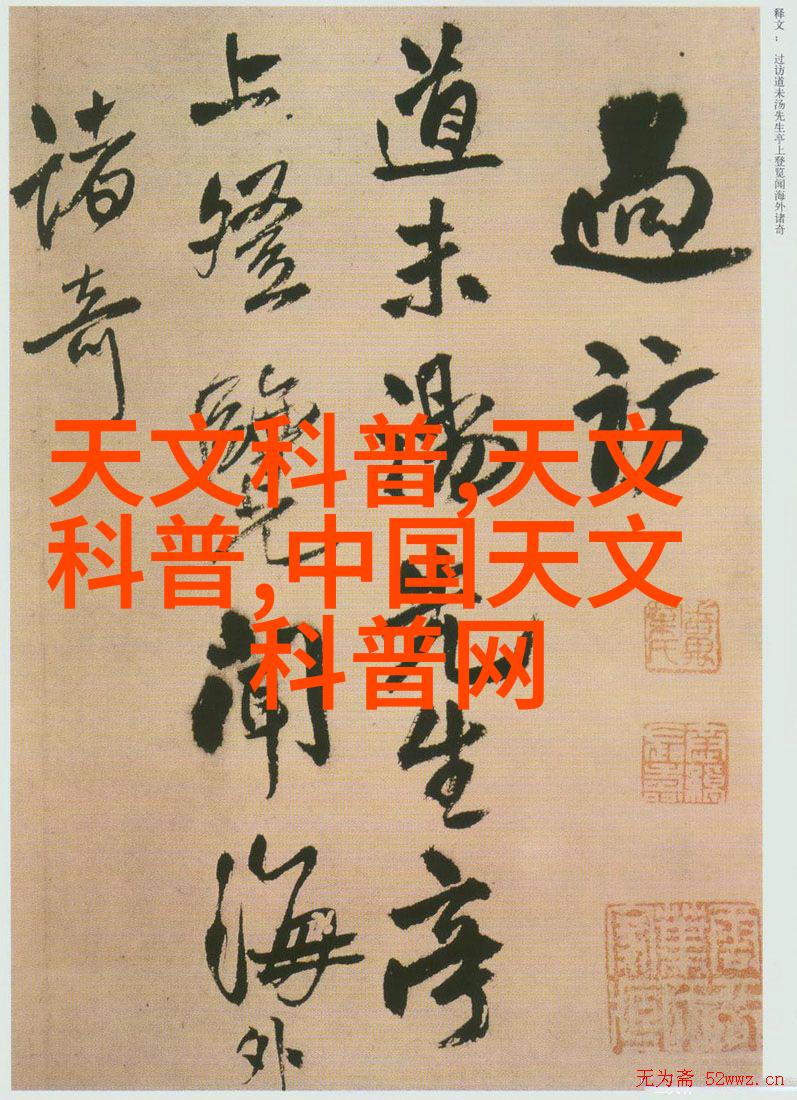 释文： 过访道未汤先生亭上登览闻海外诸奇
過訪
道未湯先生亭
上登覽聞海外
諸奇
天文科普,天文
科普,中国天文
科普网
无为斋 52wwz.cn